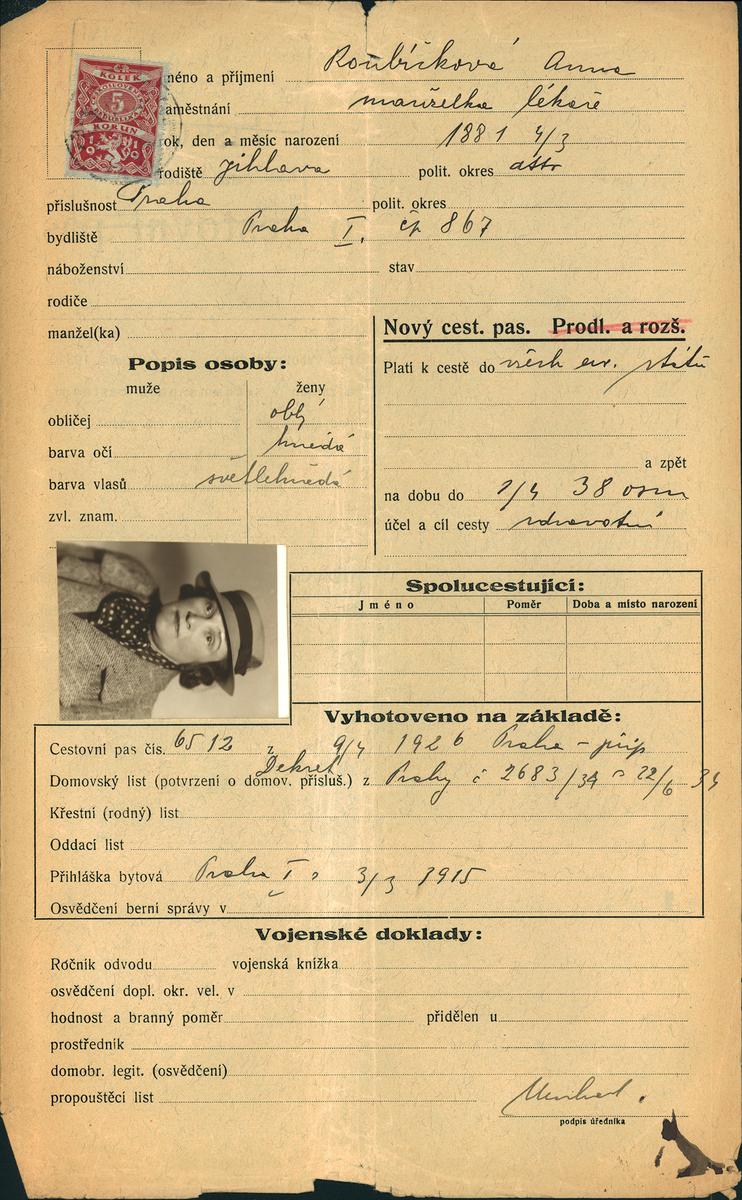 KOLEK
5
KORUN
méno a příjmení Roubíčková Anna
aměstnání manželka lékaře
ok, den a měsíc narození 1881 4/3
rodiště Jihlava polit. okres
příslušnost Praha polit. okres
bydliště Praha I. čp 867
náboženství stav
rodiče
manžel(ka)
Nový cest. pas. Prodl. a rozš.
Popis osoby:
muže ženy
obličej oblý
barva očí hnědá
barva vlasů světlehnědá
zvl. znam.
Platí k cestě do všech ev. států
a zpět
na dobu do 1/4 38 osm
účel a cíl cesty zdravotní
Spolucestující:
Jméno Poměr Doba a místo narození
Vyhotoveno na základě:
Cestovní pas čís. 6512 z 9/4 1926 Praha -
Dekret
Domovský list (potvrzení o domov. přísluš.) z Prahy č 2683/34 22/6 34
Křestní (rodný) list
Oddací list
Přihláška bytová Praha I 3/3 1915
Osvědčení berní správy v
Vojenské doklady:
Ročník odvodu vojenská knížka
osvědčení dopl. okr. vel. v
hodnost a branný poměr přidělen u
prostředník
domobr. legit. (osvědčení)
propouštěcí list
podpis úředníka